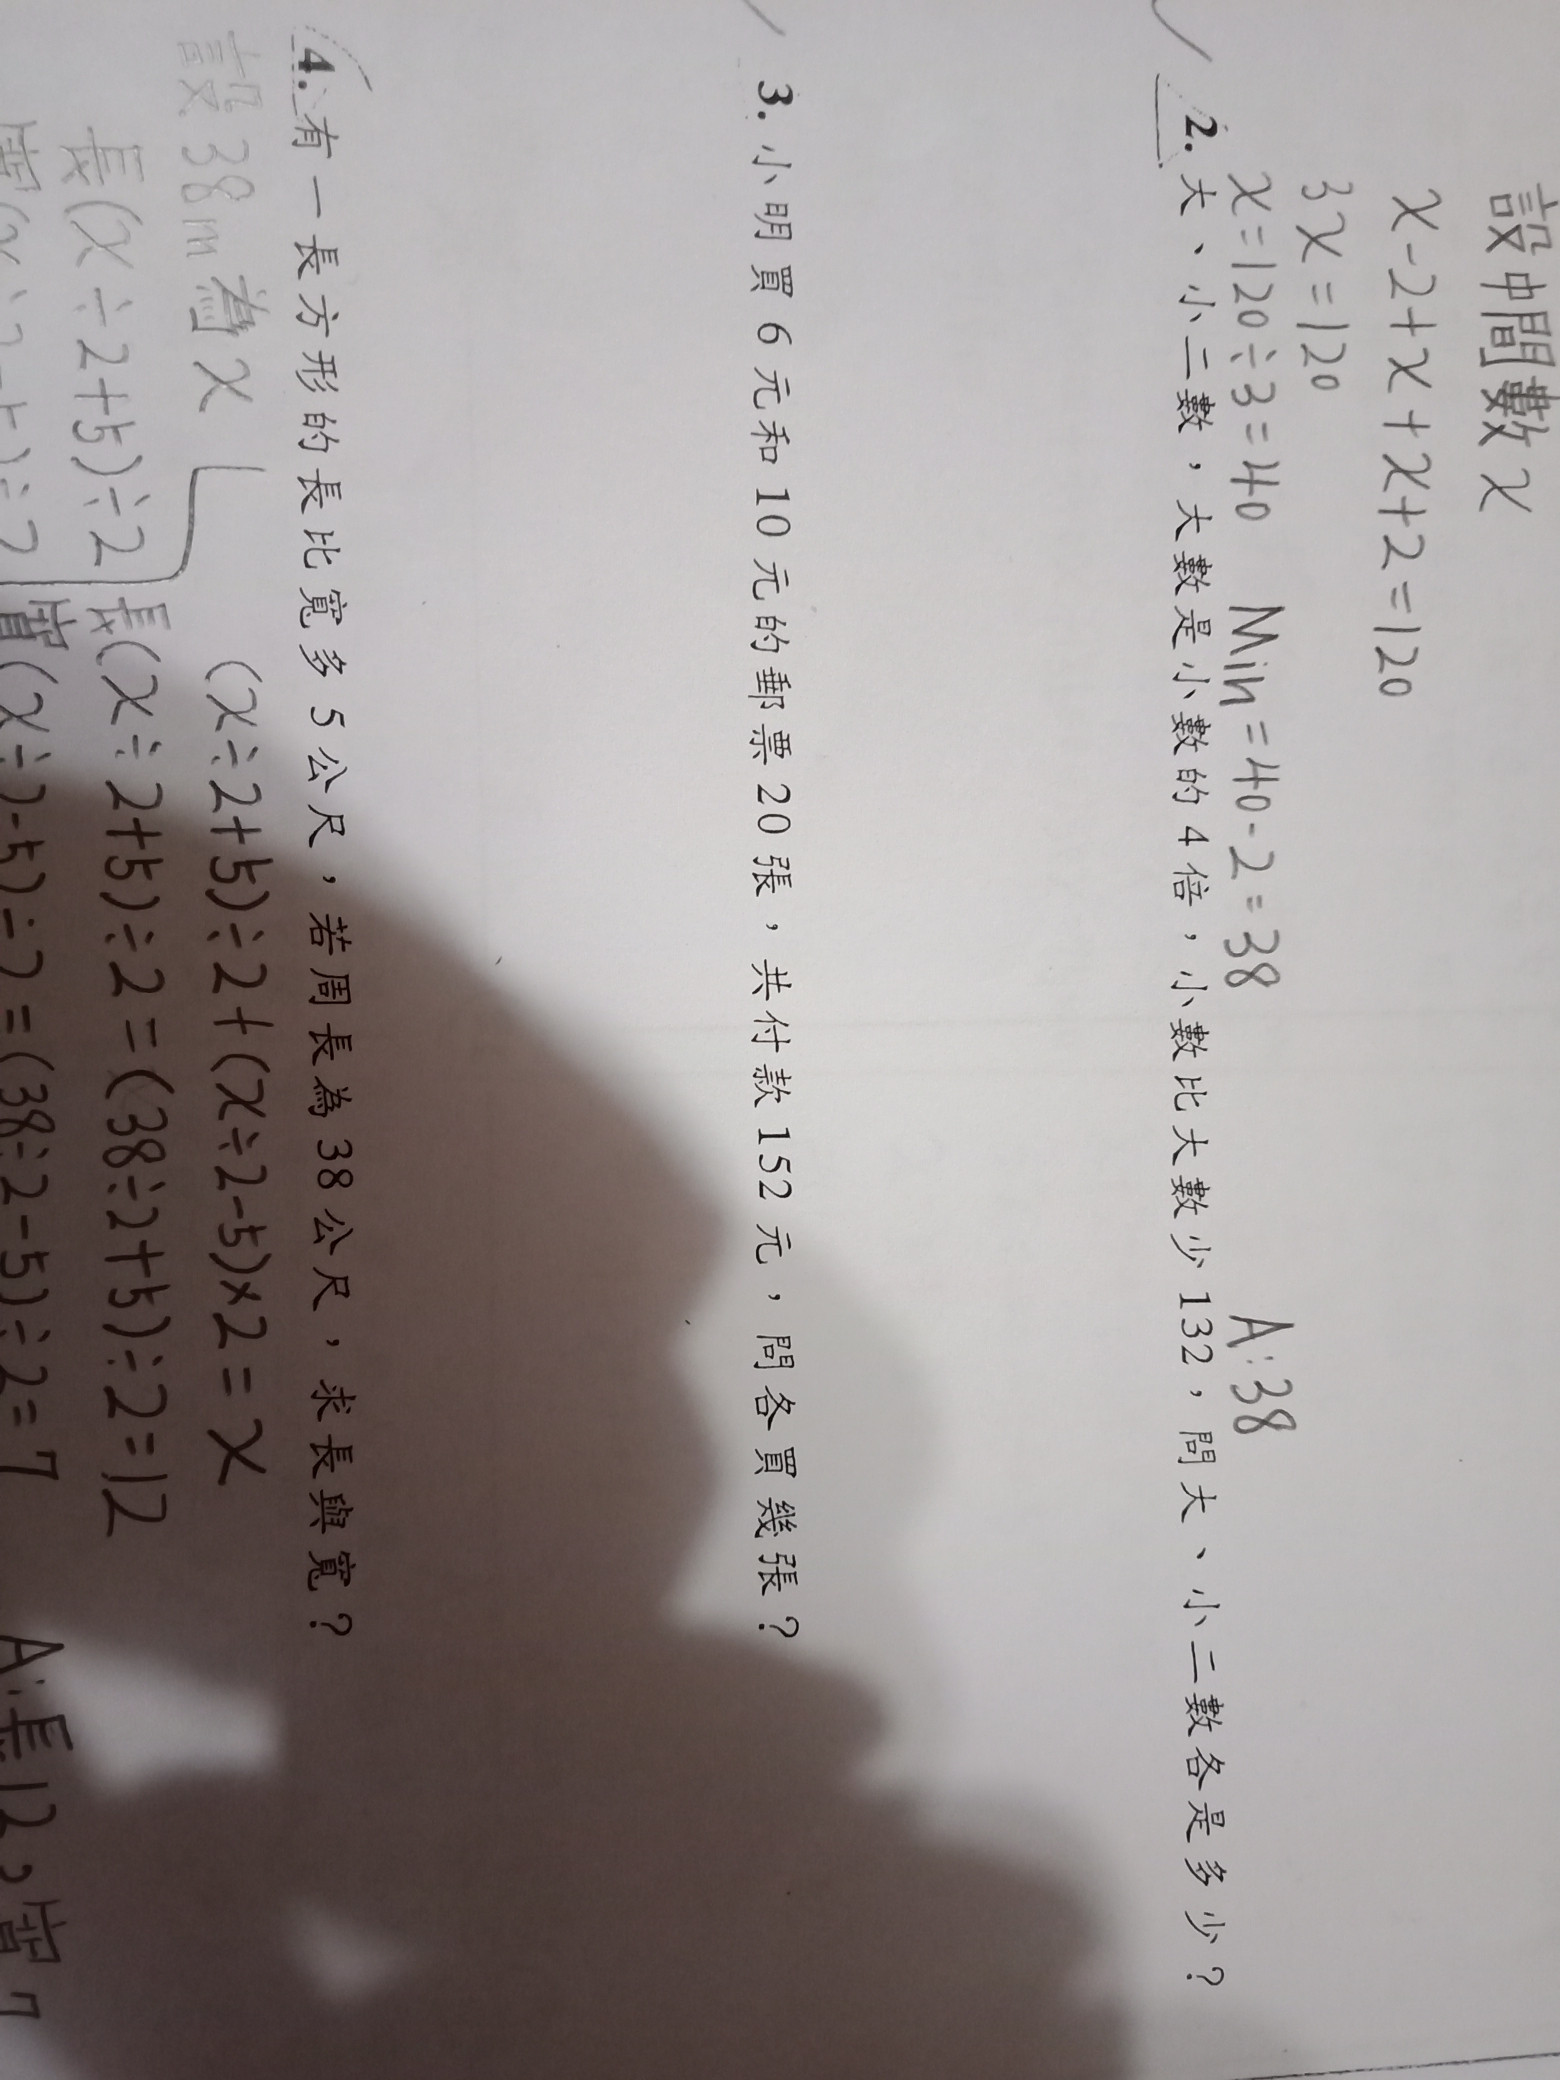 設中間數x
x-2+x+x+2=120
3x=120
x=120÷3=40 Min=40-2=38 A:38
2.大、小二數，大數是小數的4倍，小數比大數少132，問大、小二數各是多少？
3.小明買6元和10元的郵票20張，共付款152元，問各買幾張？
4.有一長方形的長比寬多5公尺，若周長為38公尺，求長與寬？
設38m為x
(x÷2+5)÷2+(x÷2-5)×2=x
長(x÷2+5)÷2
長(x÷2+5)÷2=(38÷2+5)÷2=12
寬(x÷2-5)÷2
寬(x÷2-5)÷2=(38÷2-5)÷2=7
A:長12,寬7